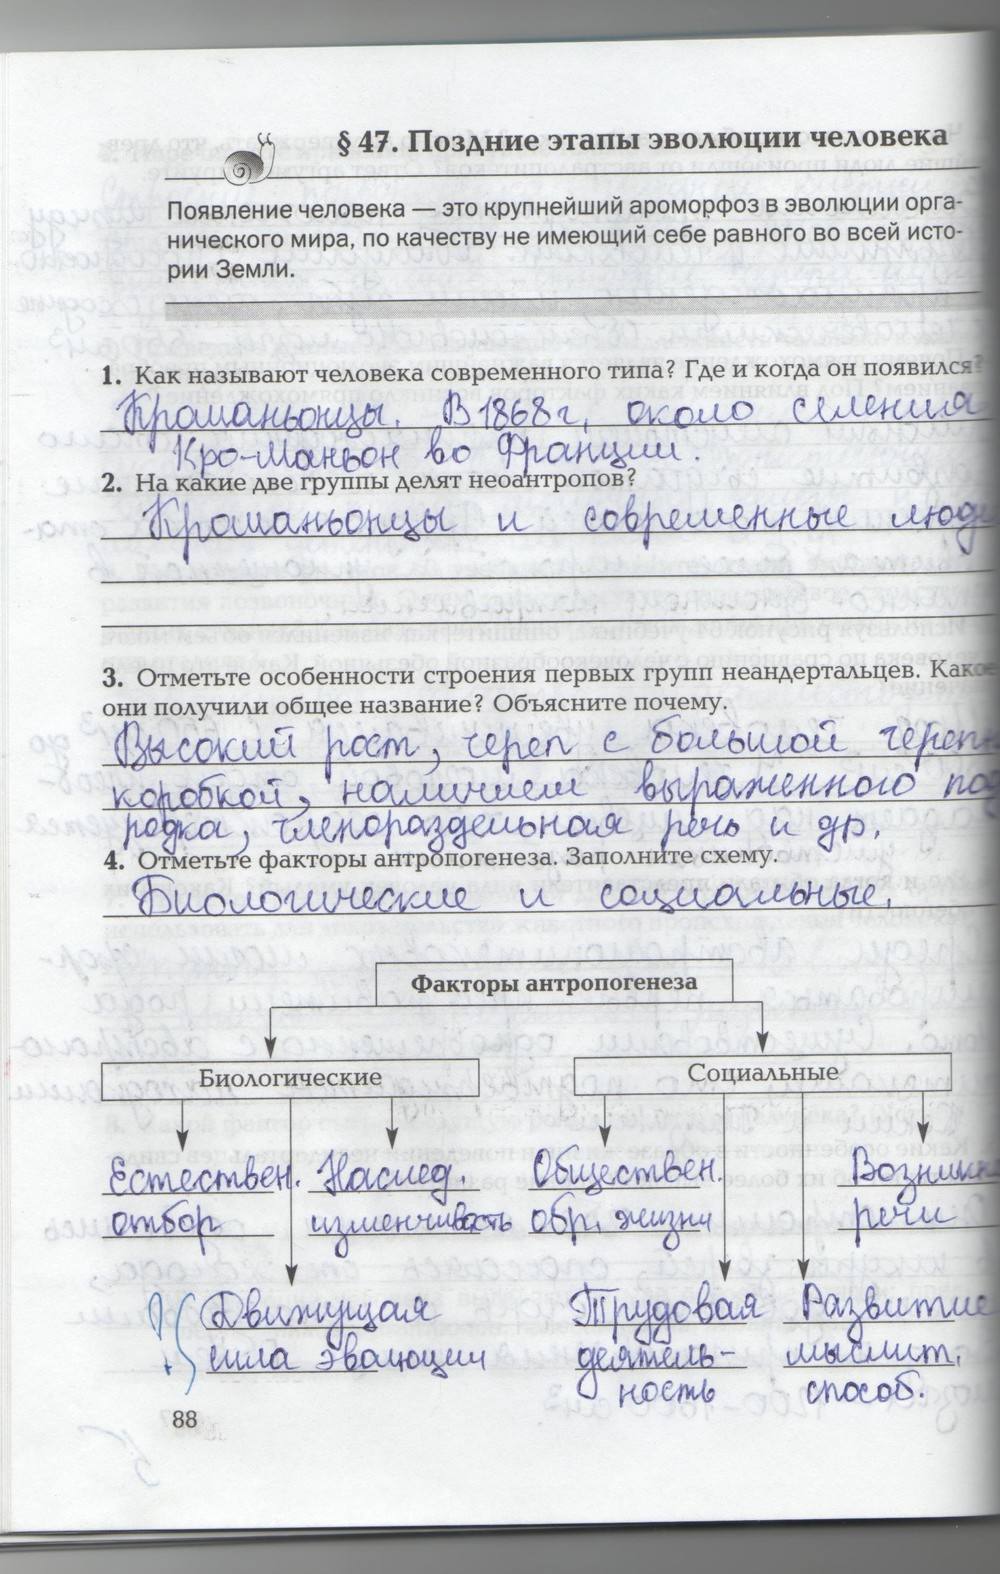 § 47. Поздние этапы эволюции человека
Появление человека — это крупнейший ароморфоз в эволюции орга-
нического мира, по качеству не имеющий себе равного во всей исто-
рии Земли.
1. Как называют человека современного типа? Где и когда он появился?
Кроманьонцы. В 1868г, около селения
Кро-Маньон во Франции.
2. На какие две группы делят неоантропов?
Кроманьонцы и современные люди
3. Отметьте особенности строения первых групп неандертальцев. Какое
они получили общее название? Объясните почему.
Высокий рост, череп с большой череп
коробкой, наличием выраженного под
родка, членораздельная речь и др.
4. Отметьте факторы антропогенеза. Заполните схему.
Биологические и социальные.
Факторы антропогенеза
Биологические Социальные
Естествен. Наслед. Обществен. Возникн
отбор изменчивость обр. жизни речи
Движущая Трудовая Развитие
сила эволюции деятель- мыслит.
ность способ.
88